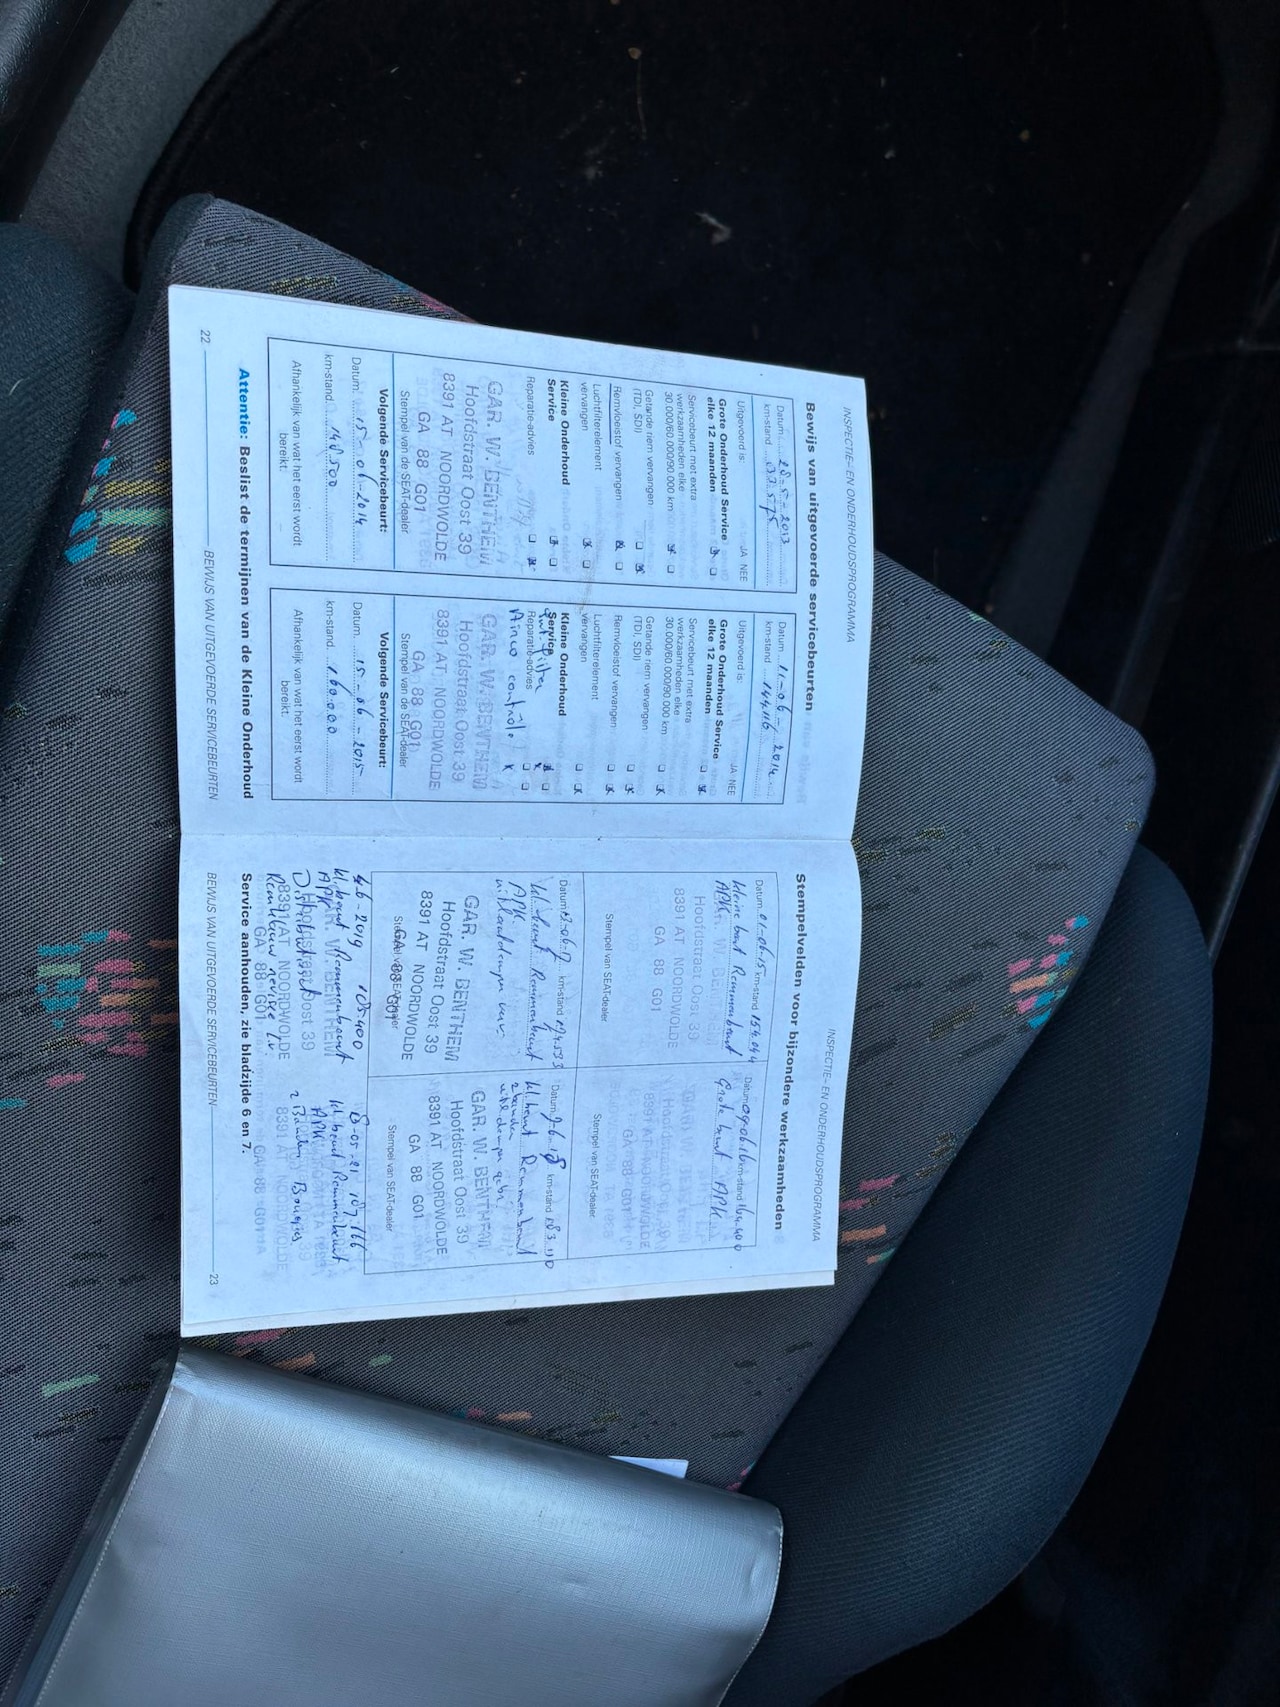 INSPECTIE– EN ONDERHOUDSPROGRAMMA
Bewijs van uitgevoerde servicebeurten
Datum 28-5-2013
km-stand
Uitgevoerd is: JA NEE
Grote Onderhoud Service
elke 12 maanden
Servicebeurt met extra
werkzaamheden elke
30.000/60.000/90.000 km
Getande riem vervangen
(TDI, SDI)
Remvloeistof vervangen
Luchtfilterelement
vervangen
Kleine Onderhoud
Service
Reparatie-advies
GAR. W. BENTHEM
Hoofdstraat Oost 39
8391 AT NOORDWOLDE
GA 88 G01
Stempel van de SEAT-dealer
Volgende Servicebeurt:
Datum 15-06-2014
km-stand 148.500
Afhankelijk van wat het eerst wordt
bereikt.
Datum 11-06-2014
km-stand 144.116
Uitgevoerd is: JA NEE
Grote Onderhoud Service
elke 12 maanden
Servicebeurt met extra
werkzaamheden elke
30.000/60.000/90.000 km
Getande riem vervangen
(TDI, SDI)
Remvloeistof vervangen
Luchtfilterelement
vervangen
Kleine Onderhoud
Service
Reparatie-advies
Airco controle x
GAR. W. BENTHEM
Hoofdstraat Oost 39
8391 AT NOORDWOLDE
GA 88 G01
Stempel van de SEAT-dealer
Volgende Servicebeurt:
Datum 15-06-2015
km-stand 160.000
Afhankelijk van wat het eerst wordt
bereikt.
Attentie: Beslist de termijnen van de Kleine Onderhoud
22 BEWIJS VAN UITGEVOERDE SERVICEBEURTEN
INSPECTIE– EN ONDERHOUDSPROGRAMMA
Stempelvelden voor bijzondere werkzaamheden
Datum 01-06-15 km-stand 154.044
kleine beurt Remmenbeurt
APK
Hoofdstraat Oost 39
8391 AT NOORDWOLDE
GA 88 G01
Stempel van SEAT-dealer
Datum 09-06-16 km-stand 164.400
Grote beurt APK
Stempel van SEAT-dealer
Datum km-stand 174.533
kl. beurt Remmenbeurt
APK
GAR. W. BENTHEM
Hoofdstraat Oost 39
8391 AT NOORDWOLDE
GA 88 G01
Stempel van SEAT-dealer
Datum 7-6-18 km-stand 183.110
kl. beurt Remmenbeurt
GAR. W. BENTHEM
Hoofdstraat Oost 39
8391 AT NOORDWOLDE
GA 88 G01
Stempel van SEAT-dealer
4-6-2019
kl. beurt Remmenbeurt
APK
GAR. W. BENTHEM
Hoofdstraat Oost 39
8391 AT NOORDWOLDE
GA 88 G01
kl. beurt Remmenbeurt
APK
2 Banden Bougies
Service aanhouden, zie bladzijde 6 en 7.
BEWIJS VAN UITGEVOERDE SERVICEBEURTEN 23